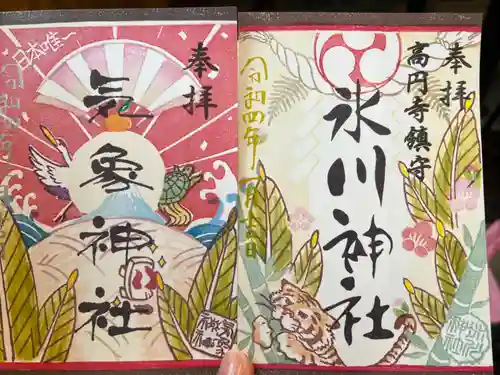 奉拝
高円寺鎮守
氷川神社
令和四年一月十一日
奉拝
日本唯一
気象神社
令和四年